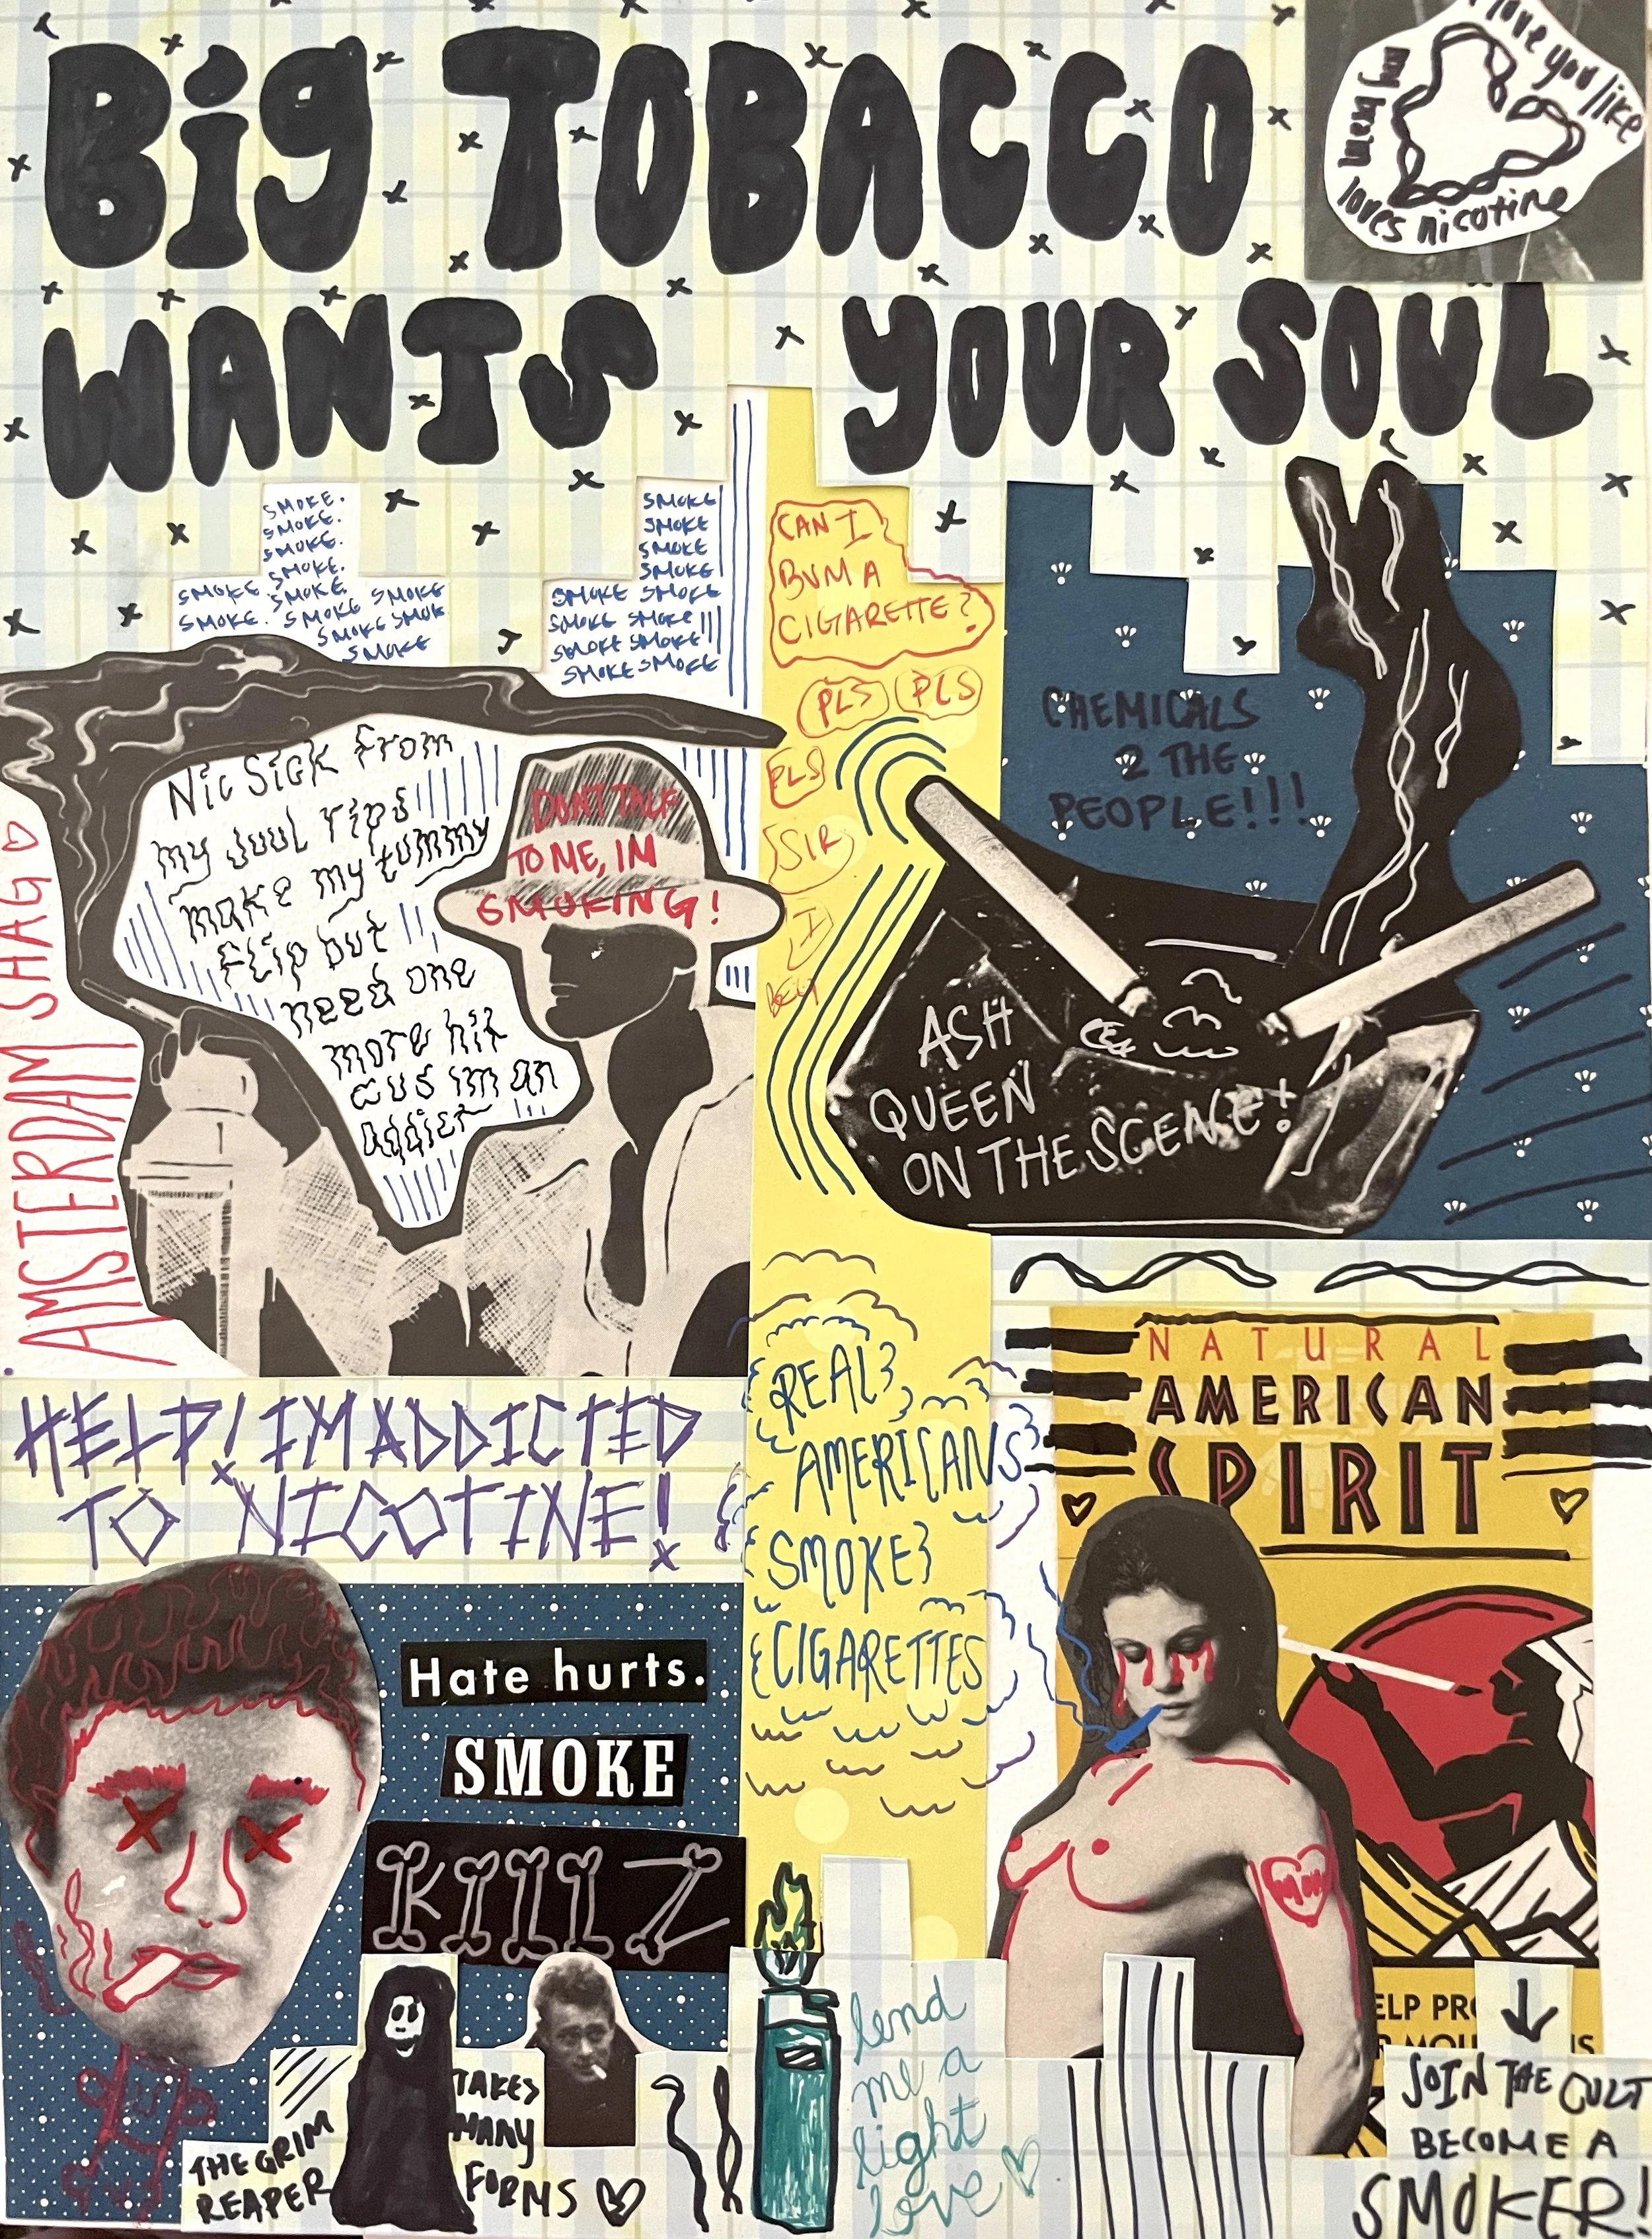 Big TOBACCO
WANTS YOUR SOUL
I love you like
my brain
loves nicotine
SMOKE.
SMOKE.
SMOKE.
SMOKE.
SMOKE. SMOKE. SMOKE
SMOKE. SMOKE SMOKE
SMOKE SMOK
SMOKE
SMOKE
SMOKE
SMOKE
SMOKE
SMOKE SMOKE
SMOKE SMOKE
SMOKE SMOKE
SMOKE SMOKE
CAN I
BUM A
CIGARETTE?
PLS PLS
PLS
SIR
I
BEG
CHEMICALS
2 THE
PEOPLE!!!
Nic Sick from
my Juul rips
make my tummy
flip but
need one
more hit
cus im an
addict
DON'T TALK
TO ME, IM
SMOKING!
AMSTERDAM SHAG
ASH
QUEEN
ON THE SCENE!
HELP! IM ADDICTED
TO NICOTINE!
REAL
AMERICANS
SMOKE
CIGARETTES
NATURAL
AMERICAN
SPIRIT
Hate hurts.
SMOKE
KILLZ
MOM
THE GRIM
REAPER
TAKES
MANY
FORMS
lend
me a
light
love
ELP PR
JOIN THE CULT
BECOME A
SMOKER!